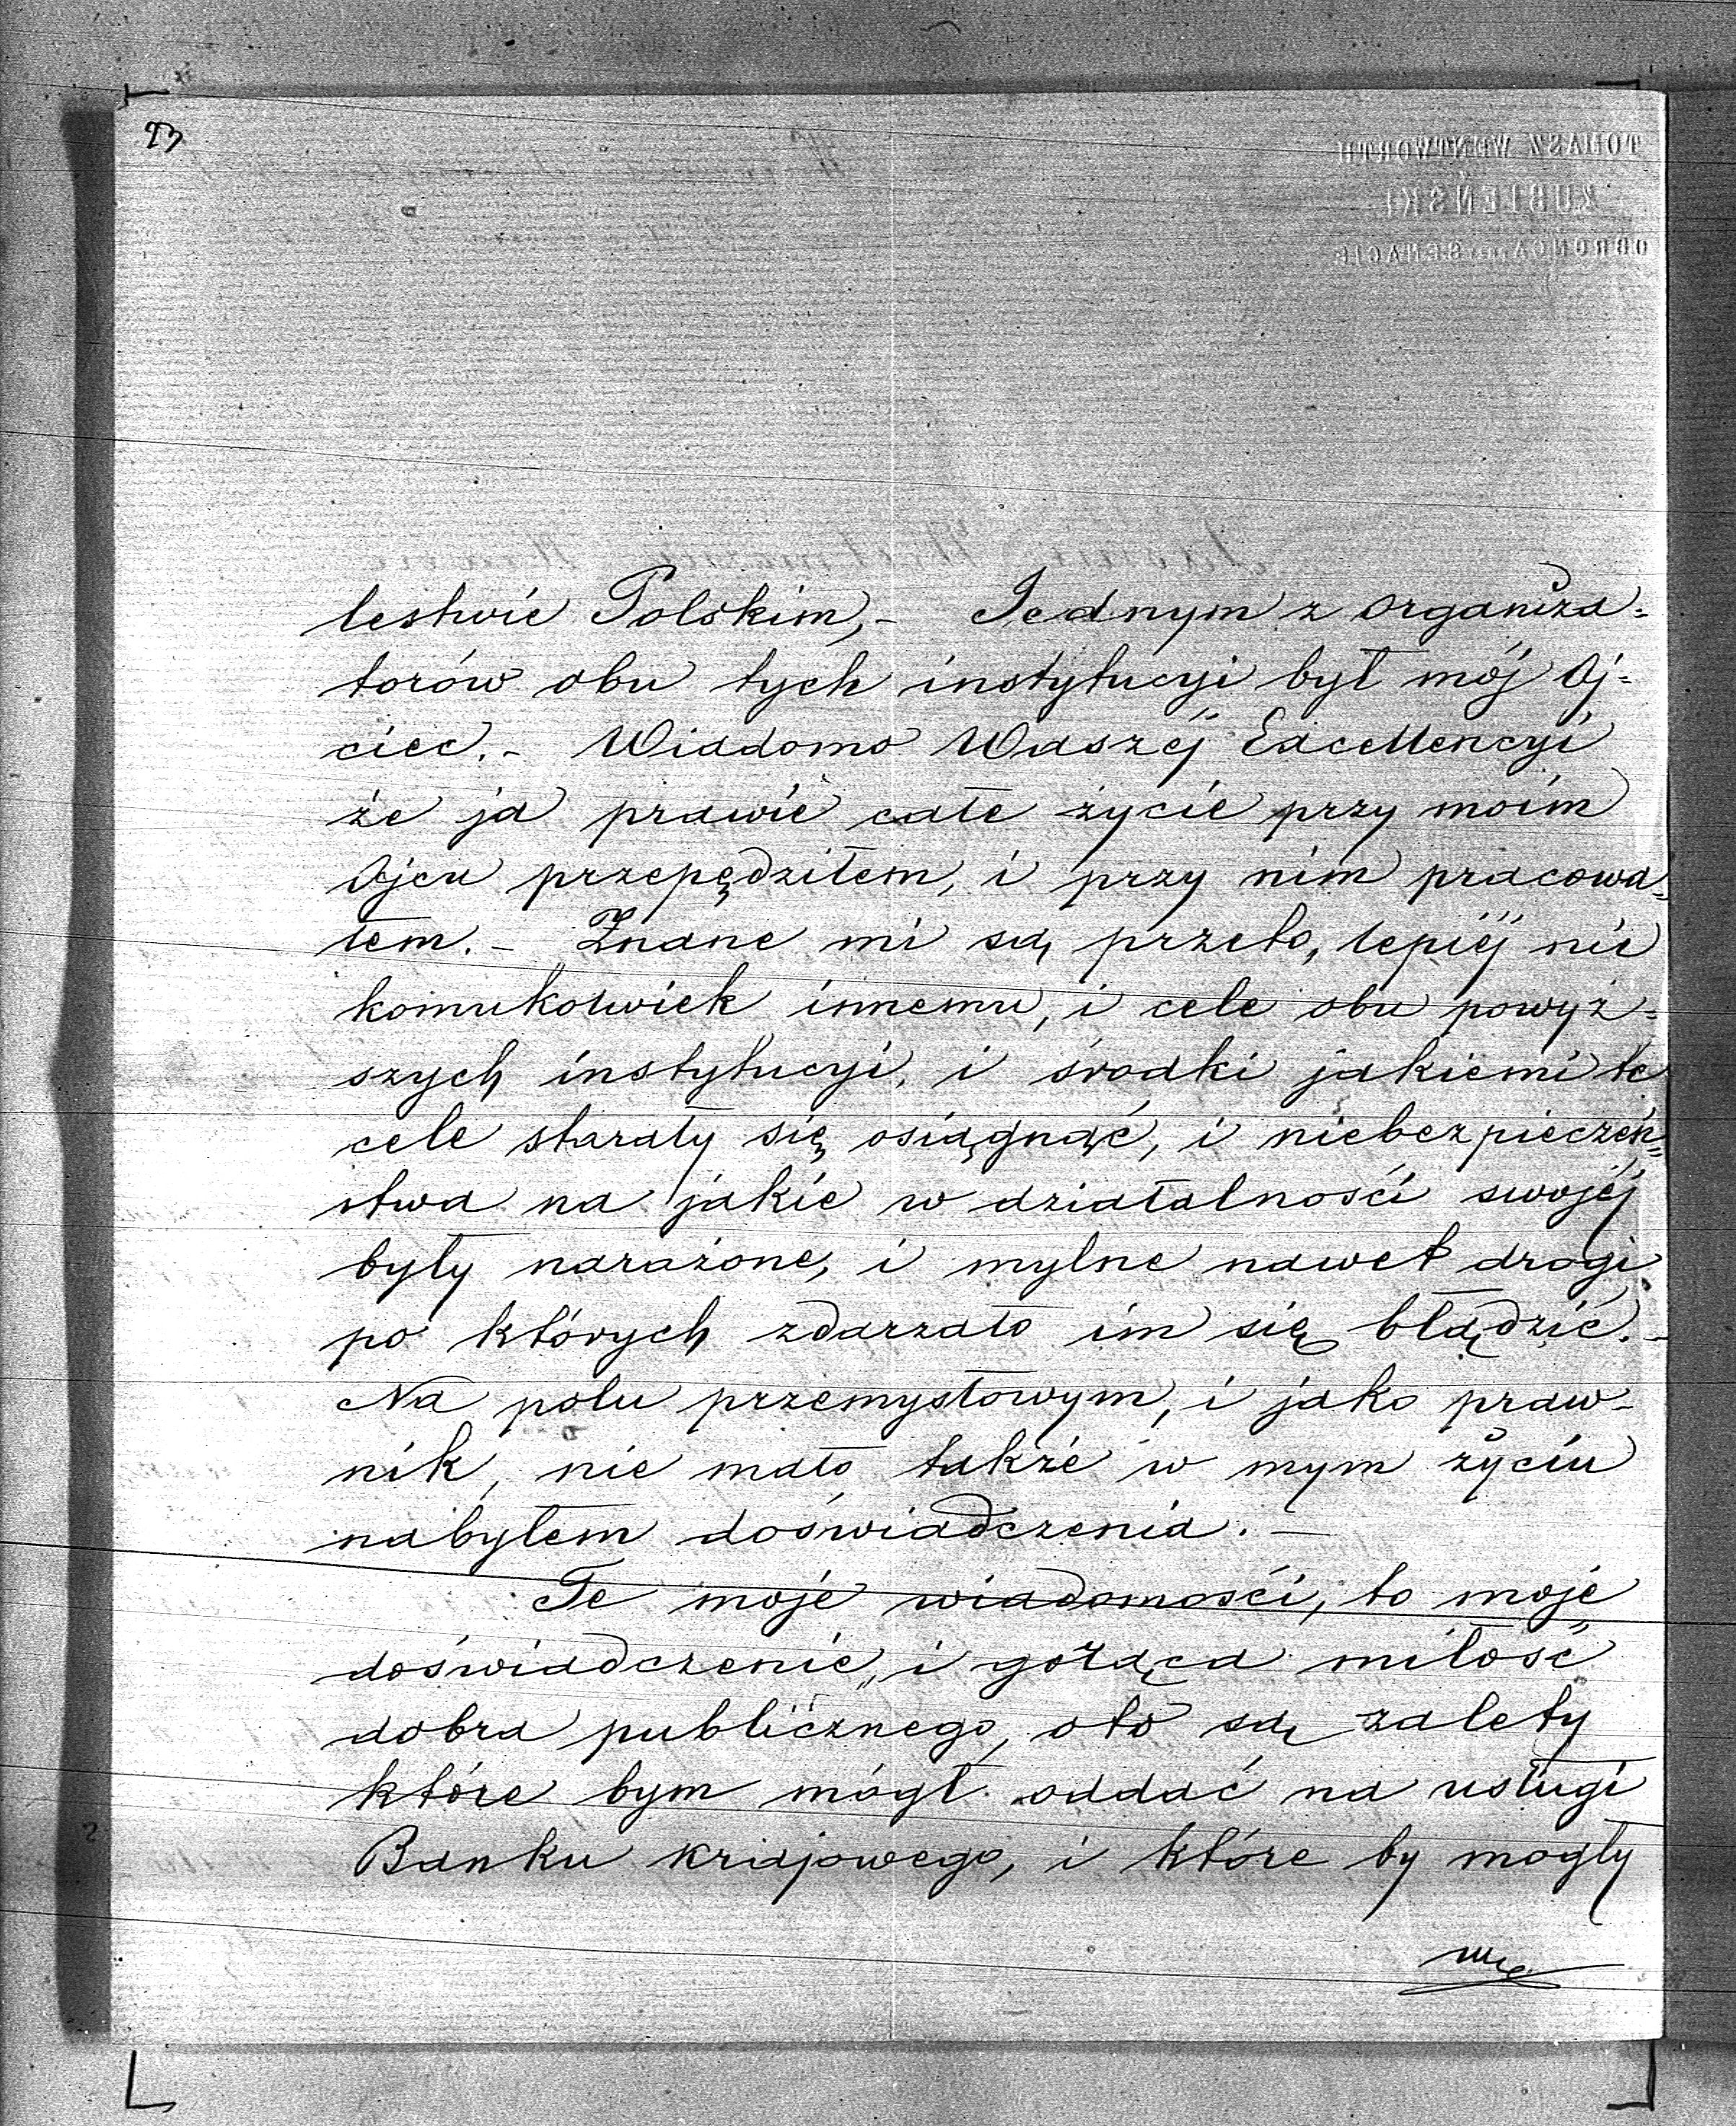 23
TOMASZ WENTWORTH
ŁUBIEŃSKI
OBROŃCA przy SENACIE
lestwie Polskim,- Jednym z organiza=
torów obu tych instytucyi był mój Oj=
ciec.- Wiadomo Waszéj Excellencyi
że ja prawie całe życie przy moim
Ojcu przepędziłem, i przy nim pracowa=
łem.- Znane mi są przeto, lepiéj niż
komukolwiek innemu, i cele obu powyż=
szych instytucyi, i środki jakiemi te
cele starały się osiągnąć, i niebezpieczeń=
stwa na jakie w działalności swojéj
były narażone, i mylne nawet drogi
po których zdarzało im się błądzić.-
Na polu przemysłowym, i jako praw-
nik, nie mało także w mym życiu
nabyłem doświadczenia.-
Te moje wiadomości, to moje
doświadczenie, i gorąca miłość
dobra publicznego, oto są zalety
które bym mógł oddać na usługi
Banku krajowego, i które by mogły